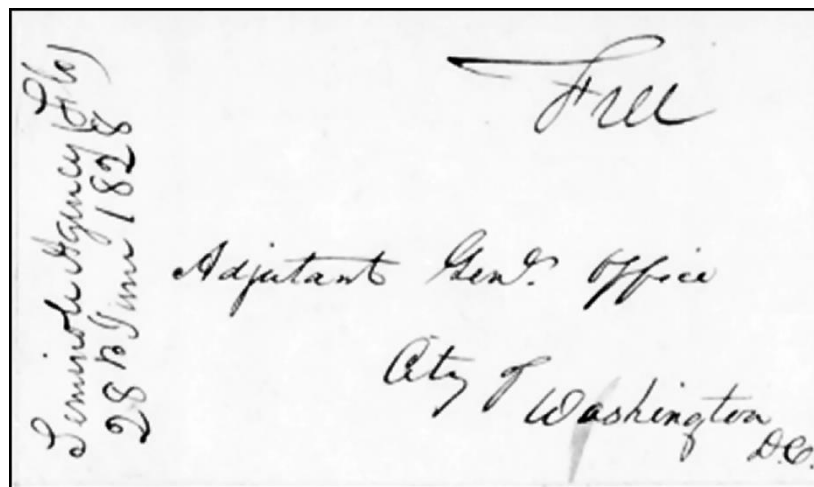 Seminole Agency (Flo)
28th June 1828
Free
Adjutant Genls. Office
City of
Washington
D.C.